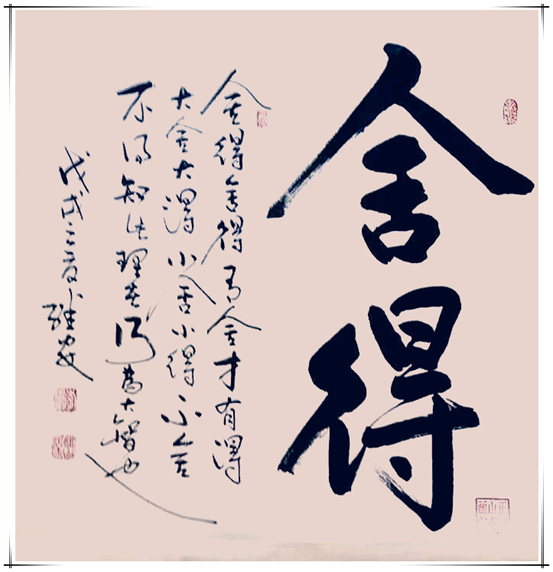 舍得
舍得舍得有舍才有得
大舍大得小舍小得不舍
不得此理者为大智也
戊戌之夏